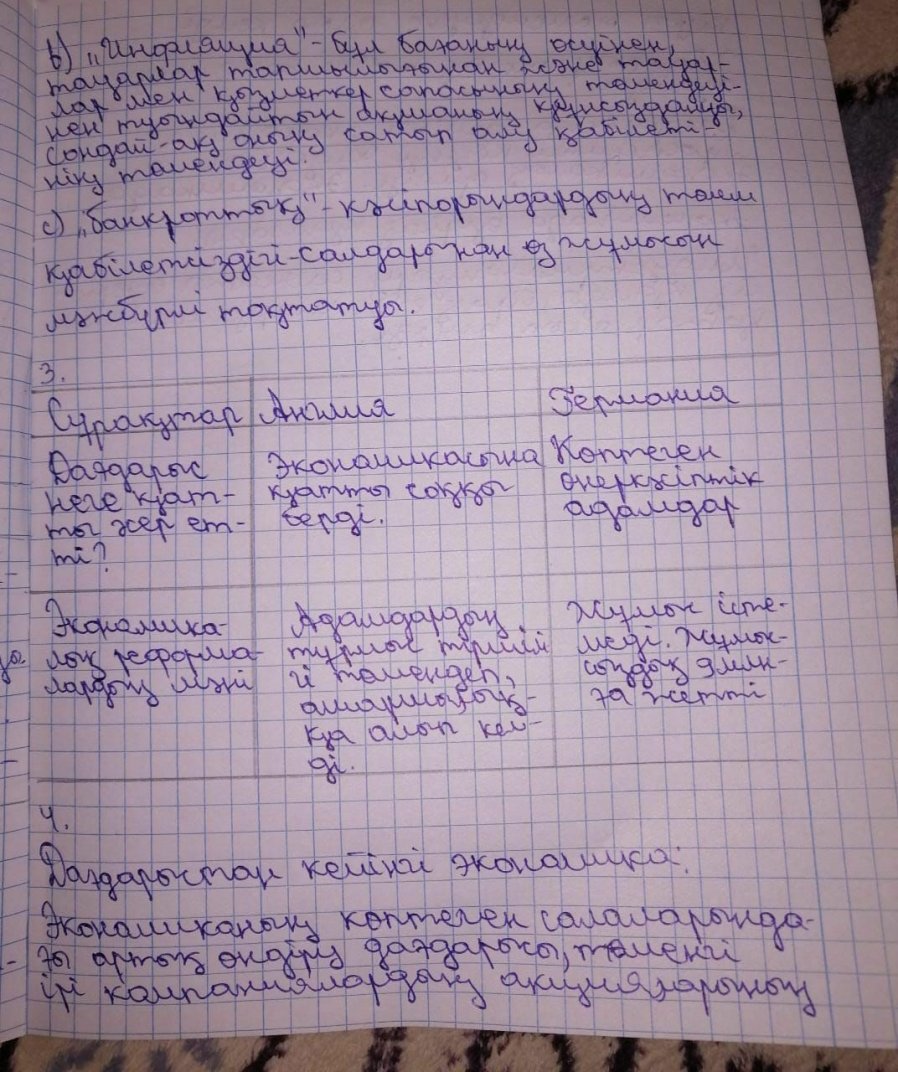 b) „Инфляция"-бұл бағаның өсуінен,
тауарлар тапшылығынан және тауар-
лар мен қызметкер сапасының төмендеуі-
нен туындайтын ақшаның құнсыздануы,
сондай-ақ оның сатып алу қабілеті-
нің төмендеуі.
с) „банкроттық"-кәсіпорындардың төлем
қабілетсіздігі-салдарынан өз жұмысын
мәжбүрлі тоқтатуы.
3.
Сұрақтар
Англия
Германия
Дағдарыс
неге қат-
ты әсер ет-
ті?
Экономикасына
қатты соққы
берді.
Көптеген
өнеркәсіптік
адамдар
Экономика-
лық реформа-
лардың мәні
Адамдардың
тұрмыс тіршілі
гі төмендеп,
аштық-
қа алып кел-
ді.
Жұмыс істе-
меді. Жұмыс-
сыздық 9 млн-
ға жетті
4.
Дағдарыстан кейінгі экономика:
Экономиканың көптеген салаларында-
ғы артық өндіру дағдарысы, төменгі
ірі компаниялардың акцияларының